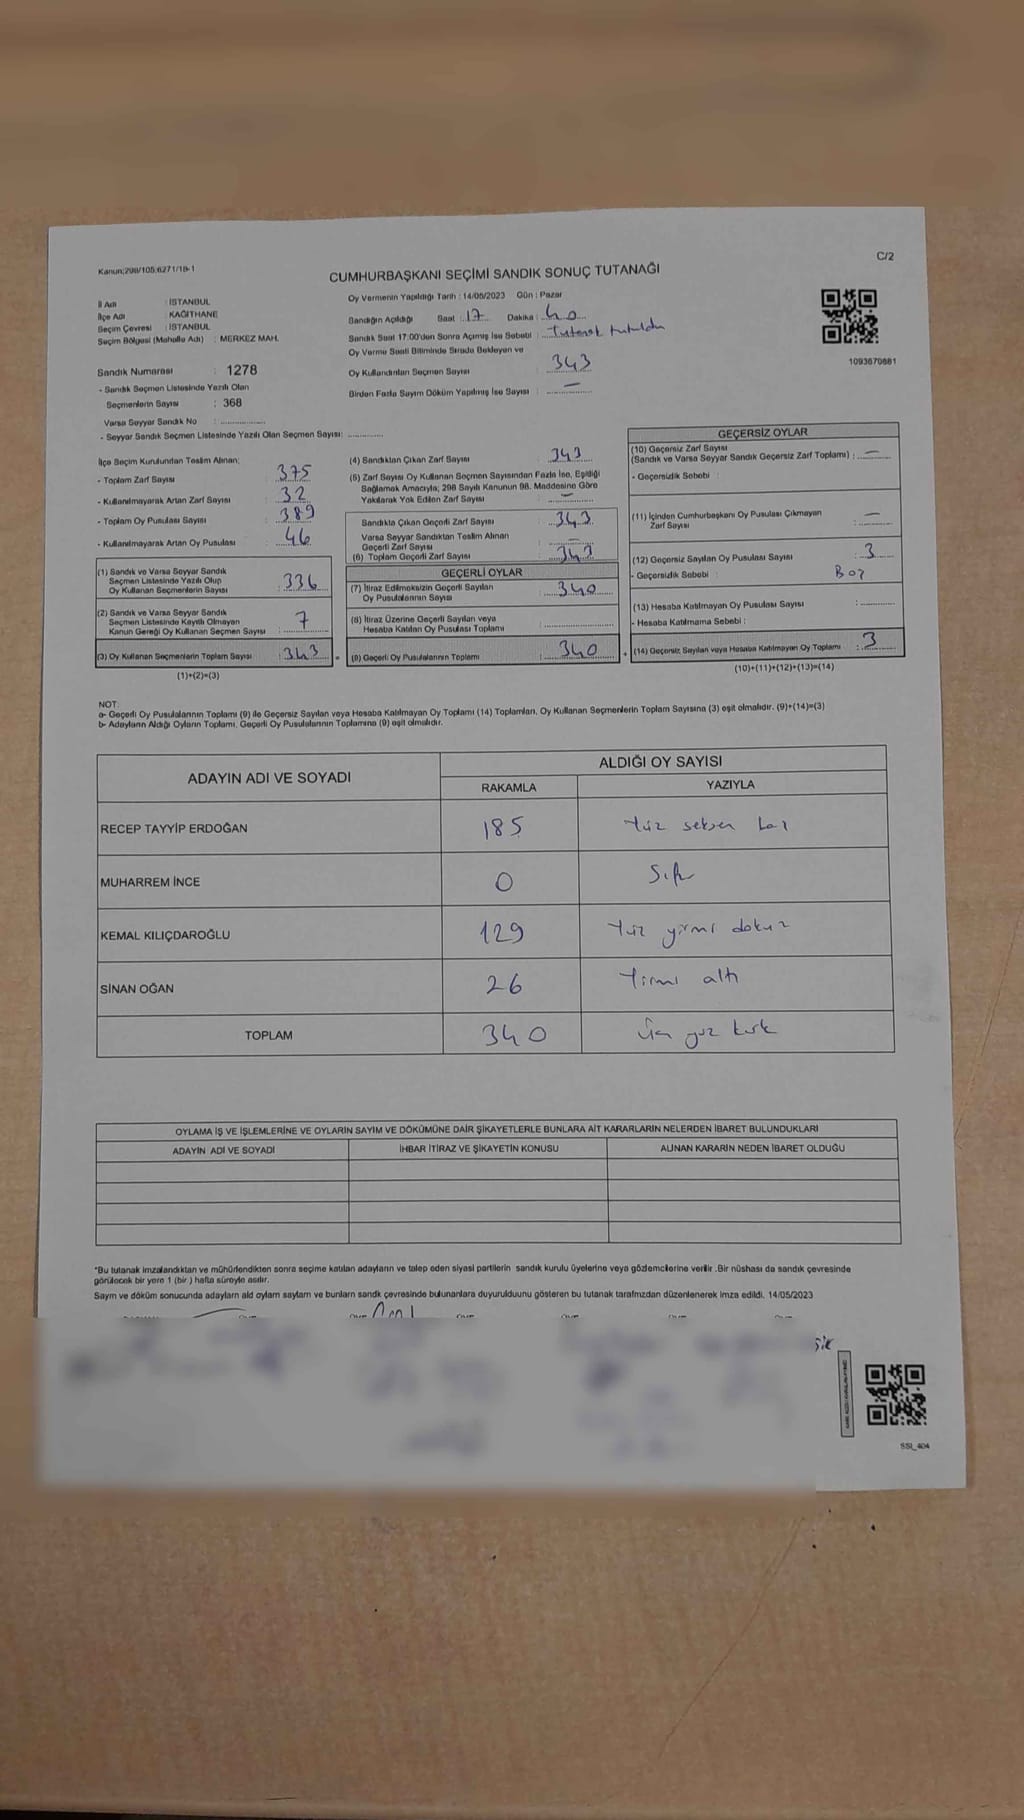 Kanun;298/105;6271/18-1
C/2
CUMHURBAŞKANI SEÇİMİ SANDIK SONUÇ TUTANAĞI
İl Adı : İSTANBUL
İlçe Adı : KAĞITHANE
Seçim Çevresi : İSTANBUL
Seçim Bölgesi (Mahalle Adı) : MERKEZ MAH.
Sandık Numarası : 1278
- Sandık Seçmen Listesinde Yazılı Olan
Seçmenlerin Sayısı : 368
Varsa Seyyar Sandık No :
- Seyyar Sandık Seçmen Listesinde Yazılı Olan Seçmen Sayısı:
Oy Vermenin Yapıldığı Tarih : 14/05/2023 Gün : Pazar
Sandığın Açıldığı Saat : 17 Dakika : 40
Sandık Saat 17:00'den Sonra Açımış İse Sebebi : Tutanak tutuldu
Oy Verme Saati Bitiminde Sırada Bekleyen ve
Oy Kullandırılan Seçmen Sayısı : 343
Birden Fazla Sayım Döküm Yapılmış İse Sayısı : —
1093670881
İlçe Seçim Kurulundan Teslim Alınan;
- Toplam Zarf Sayısı : 375
- Kullanılmayarak Artan Zarf Sayısı : 32
- Toplam Oy Pusulası Sayısı : 389
- Kullanılmayarak Artan Oy Pusulası : 46
(1) Sandık ve Varsa Seyyar Sandık
Seçmen Listesinde Yazılı Olup
Oy Kullanan Seçmenlerin Sayısı : 336
(2) Sandık ve Varsa Seyyar Sandık
Seçmen Listesinde Kayıtlı Olmayan
Kanun Gereği Oy Kullanan Seçmen Sayısı : 7
(3) Oy Kullanan Seçmenlerin Toplam Sayısı : 343
(1)+(2)=(3)
(4) Sandıktan Çıkan Zarf Sayısı : 343
(5) Zarf Sayısı Oy Kullanan Seçmen Sayısından Fazla İse, Eşitliği
Sağlamak Amacıyla; 298 Sayılı Kanunun 98. Maddesine Göre
Yakılarak Yok Edilen Zarf Sayısı : —
Sandıkta Çıkan Geçerli Zarf Sayısı : 343
Varsa Seyyar Sandıktan Teslim Alınan
Geçerli Zarf Sayısı : —
(6) Toplam Geçerli Zarf Sayısı : 343
GEÇERLİ OYLAR
(7) İtiraz Edilmeksizin Geçerli Sayılan
Oy Pusulalarının Sayısı : 340
(8) İtiraz Üzerine Geçerli Sayılan veya
Hesaba Katılan Oy Pusulası Toplamı :
(9) Geçerli Oy Pusulalarının Toplamı : 340
GEÇERSİZ OYLAR
(10) Geçersiz Zarf Sayısı
(Sandık ve Varsa Seyyar Sandık Geçersiz Zarf Toplamı) : —
- Geçersizlik Sebebi :
(11) İçinden Cumhurbaşkanı Oy Pusulası Çıkmayan
Zarf Sayısı : —
(12) Geçersiz Sayılan Oy Pusulası Sayısı : 3
- Geçersizlik Sebebi :
(13) Hesaba Katılmayan Oy Pusulası Sayısı :
- Hesaba Katılmama Sebebi :
(14) Geçersiz Sayılan veya Hesaba Katılmayan Oy Toplamı : 3
(10)+(11)+(12)+(13)=(14)
NOT:
a- Geçerli Oy Pusulalarının Toplamı (9) ile Geçersiz Sayılan veya Hesaba Katılmayan Oy Toplamı (14) Toplamları, Oy Kullanan Seçmenlerin Toplam Sayısına (3) eşit olmalıdır. (9)+(14)=(3)
b- Adayların Aldığı Oyların Toplamı, Geçerli Oy Pusulalarının Toplamına (9) eşit olmalıdır.
ADAYIN ADI VE SOYADI ALDIĞI OY SAYISI
RAKAMLA YAZIYLA
RECEP TAYYİP ERDOĞAN 185 Yüz seksen beş
MUHARREM İNCE 0 Sıfır
KEMAL KILIÇDAROĞLU 129 Yüz yirmi dokuz
SİNAN OĞAN 26 Yirmi altı
TOPLAM 340 Üç yüz kırk
OYLAMA İŞ VE İŞLEMLERİNE VE OYLARIN SAYIM VE DÖKÜMÜNE DAİR ŞİKAYETLERLE BUNLARA AİT KARARLARIN NELERDEN İBARET BULUNDUKLARI
ADAYIN ADI VE SOYADI İHBAR İTİRAZ VE ŞİKAYETİN KONUSU ALINAN KARARIN NEDEN İBARET OLDUĞU
"Bu tutanak imzalandıktan ve mühürlendikten sonra seçime katılan adayların ve talep eden siyasi partilerin sandık kurulu üyelerine veya gözlemcilerine verilir .Bir nüshası da sandık çevresinde
görülecek bir yere 1 (bir ) hafta süreyle asılır.
Sayım ve döküm sonucunda adayların aldı oyların sayların ve bunların sandık çevresinde bulunanlara duyurulduunu gösteren bu tutanak tarafımzdan düzenlenerek imza edildi. 14/05/2023
SSI_404